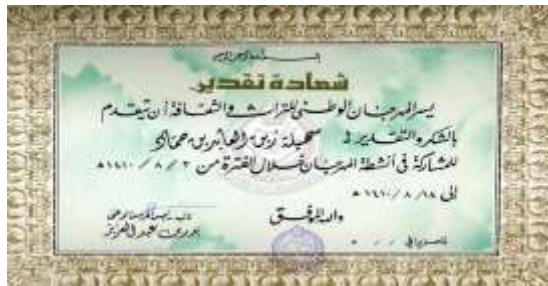 بسم الله الرحمن الرحيم
شهادة تقدير
يسر المهرجان الوطني للتراث والثقافة أن يتقدم
بالشكر والتقدير لـ سهيلة زين العابدين حماد
للمشاركة في أنشطة المهرجان خلال الفترة من ٢ / ٨ / ١٤١٠ هـ
إلى ١٨ / ٨ / ١٤١٠ هـ
والله الموفق
بدر بن عبد العزيز